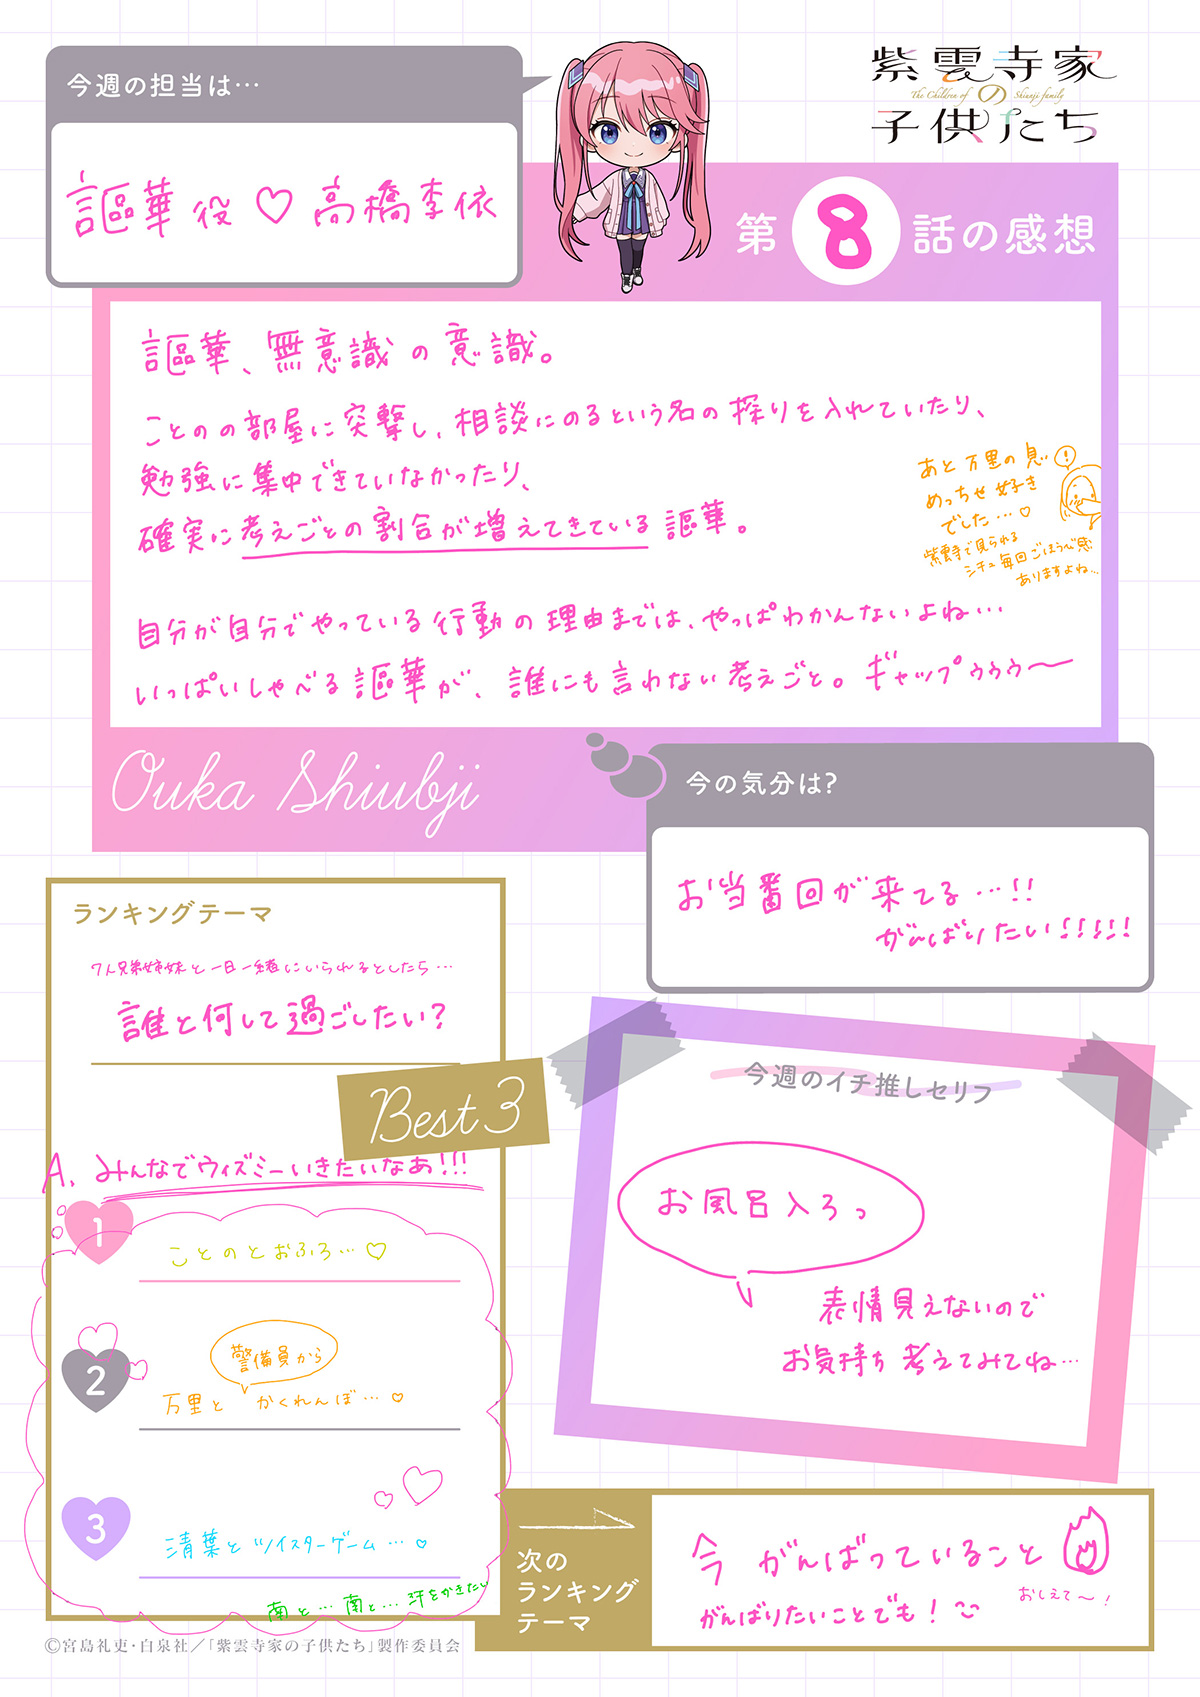 今週の担当は…
謳華役♡高橋李依
紫雲寺家
The Children of の Shiunji family
子供たち
第8話の感想
謳華、無意識の意識。
ことのの部屋に突撃し、相談にのるという名の探りを入れていたり、
勉強に集中できていなかったり、
確実に考えごとの割合が増えてきている謳華。
あと万里の息!
めっちゃ好き
でした…♡
紫雲寺で見られる
シチュ毎回ごほうび感
ありますよね…
自分が自分でやっている行動の理由までは、やっぱわかんないよね…
いっぱいしゃべる謳華が、誰にも言わない考えごと。ギャップゥゥゥ〜
Ouka Shiubji
今の気分は?
お当番回が来てる…!!
がんばりたい!!!!!
ランキングテーマ
7人兄弟姉妹と一日一緒にいられるとしたら…
誰と何して過ごしたい?
Best 3
A、みんなでウィズミーいきたいなあ!!!
1
ことのとおふろ…♡
2
警備員から
万里とかくれんぼ…♡
3
清葉とツイスターゲーム…♡
南と…南と…汗をかきたい
今週のイチ推しセリフ
お風呂入ろっ
表情見えないので
お気持ち考えてみてね…
次の
ランキング
テーマ
今がんばっていること
おしえて〜!
がんばりたいことでも!
©宮島礼吏・白泉社/「紫雲寺家の子供たち」製作委員会